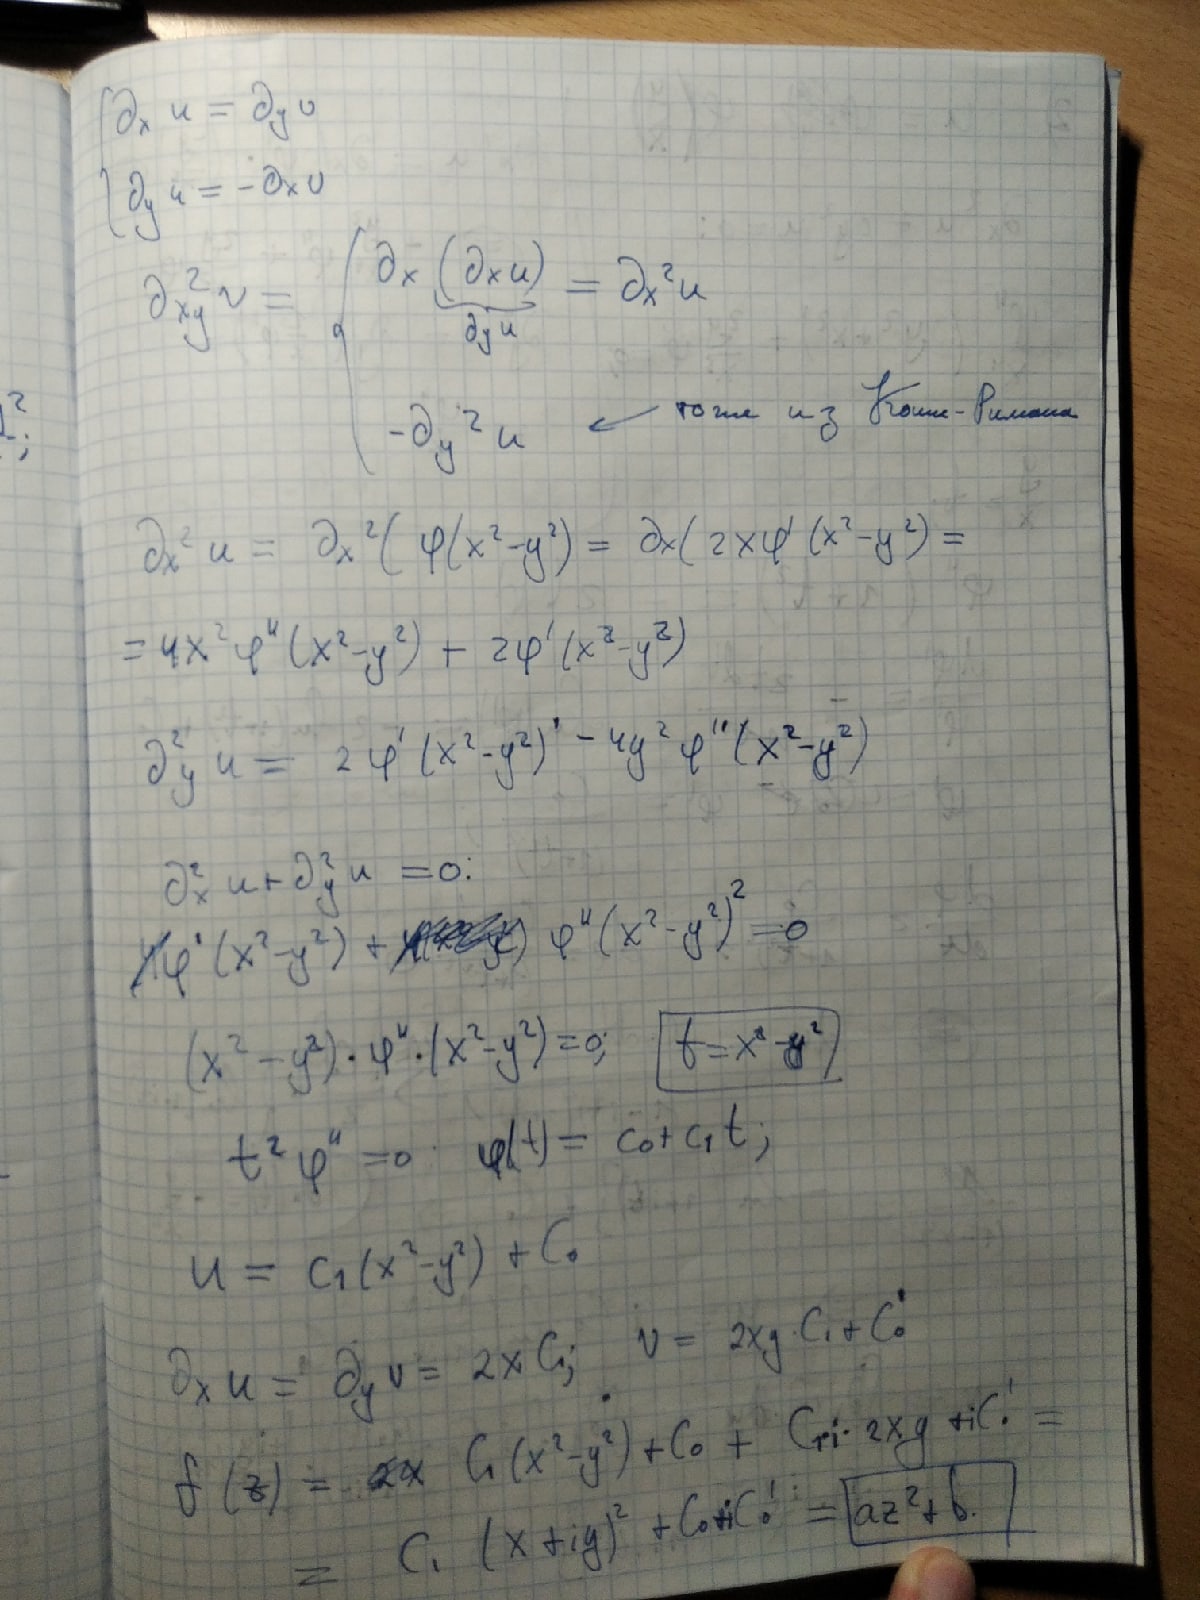 ∂x u = ∂y v
∂y u = -∂x v
∂²xy v = { ∂x (∂x u) = ∂x² u
∂y u
-∂y² u ← тоже из Коши-Римана
∂x² u = ∂x² ( φ(x²-y²) = ∂x ( 2xφ' (x²-y²) =
= 4x² φ'' (x²-y²) + 2φ' (x²-y²)
∂²y u = 2φ' (x²-y²)' - 4y² φ'' (x²-y²)
∂²x u + ∂²y u = 0:
φ' (x²-y²) + φ'' (x²-y²)² = 0
(x² - y²) · φ'' · (x²-y²) = 0; t = x² - y²
t² φ'' = 0 φ(t) = c₀ + c₁ t;
u = C₁ (x²-y²) + C₀
∂x u = ∂y v = 2x C₁; v = 2xy · C₁ + C₀'
f (z) = C₁ (x²-y²) + C₀ + C₁ i · 2xy + iC₀' =
= C₁ (x + iy)² + C₀ + iC₀' = az² + b.